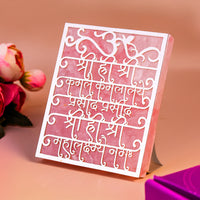 श्रीं ह्रीं श्रीं
कमले कमलालये
प्रसीद प्रसीद
श्रीं ह्रीं श्रीं
महालक्ष्म्यै नमः